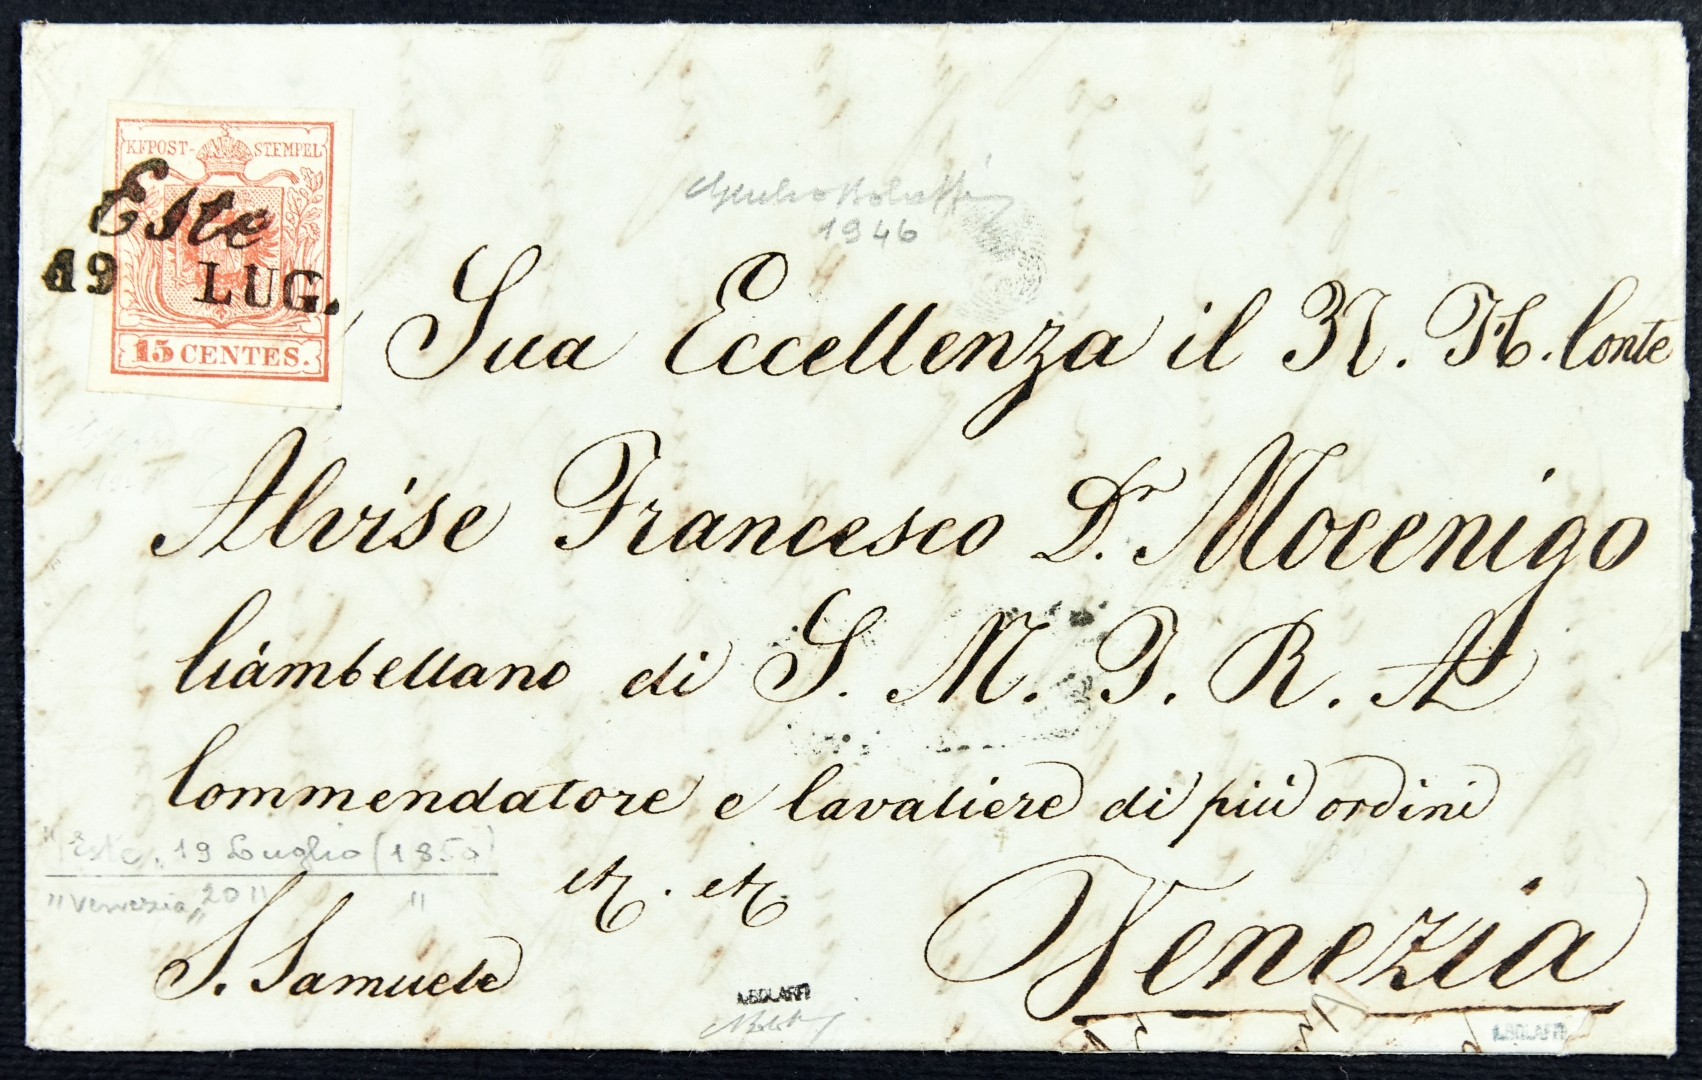 KKPOST- STEMPEL
Este
19 LUG.
15 CENTES.
1946
Sua Eccellenza il N. H. Conte
Alvise Francesco Dr. Mocenigo
Ciambellano di S. M. I. R. A
Commendatore e Cavaliere di più ordini
etc. etc.
"Este, 19 Luglio (1850)
"Venezia, 20 " "
S. Samuele
Venezia
A.BOLAFFI
A.BOLAFFI